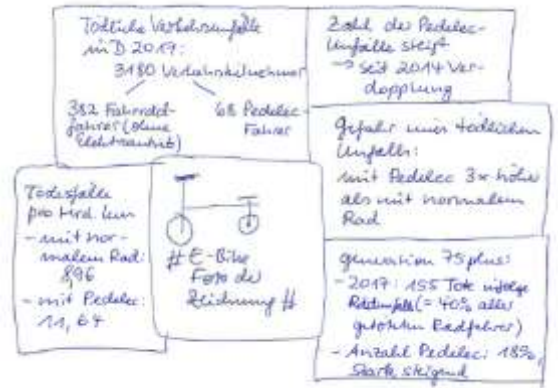 Tödliche Verkehrsunfälle
in D 2017:
3180 Verkehrsteilnehmer
382 Fahrrad-
fahrer (ohne
Elektroantrieb)
68 Pedelec-
Fahrer
Zahl der Pedelec-
Unfälle steigt
→ seit 2014 Ver-
dopplung
Gefahr eines tödlichen
Unfalls:
mit Pedelec 3x höher
als mit normalem
Rad
Todesfälle
pro Mrd. km
- mit nor-
malem Rad:
8,96
- mit Pedelec:
11,64
# E-Bike
Foto oder
Zeichnung #
Generation 75plus:
- 2017: 155 Tote infolge
(= 40% aller
getöteten Radfahrer)
- Anzahl Pedelec: 18%,
stark steigend